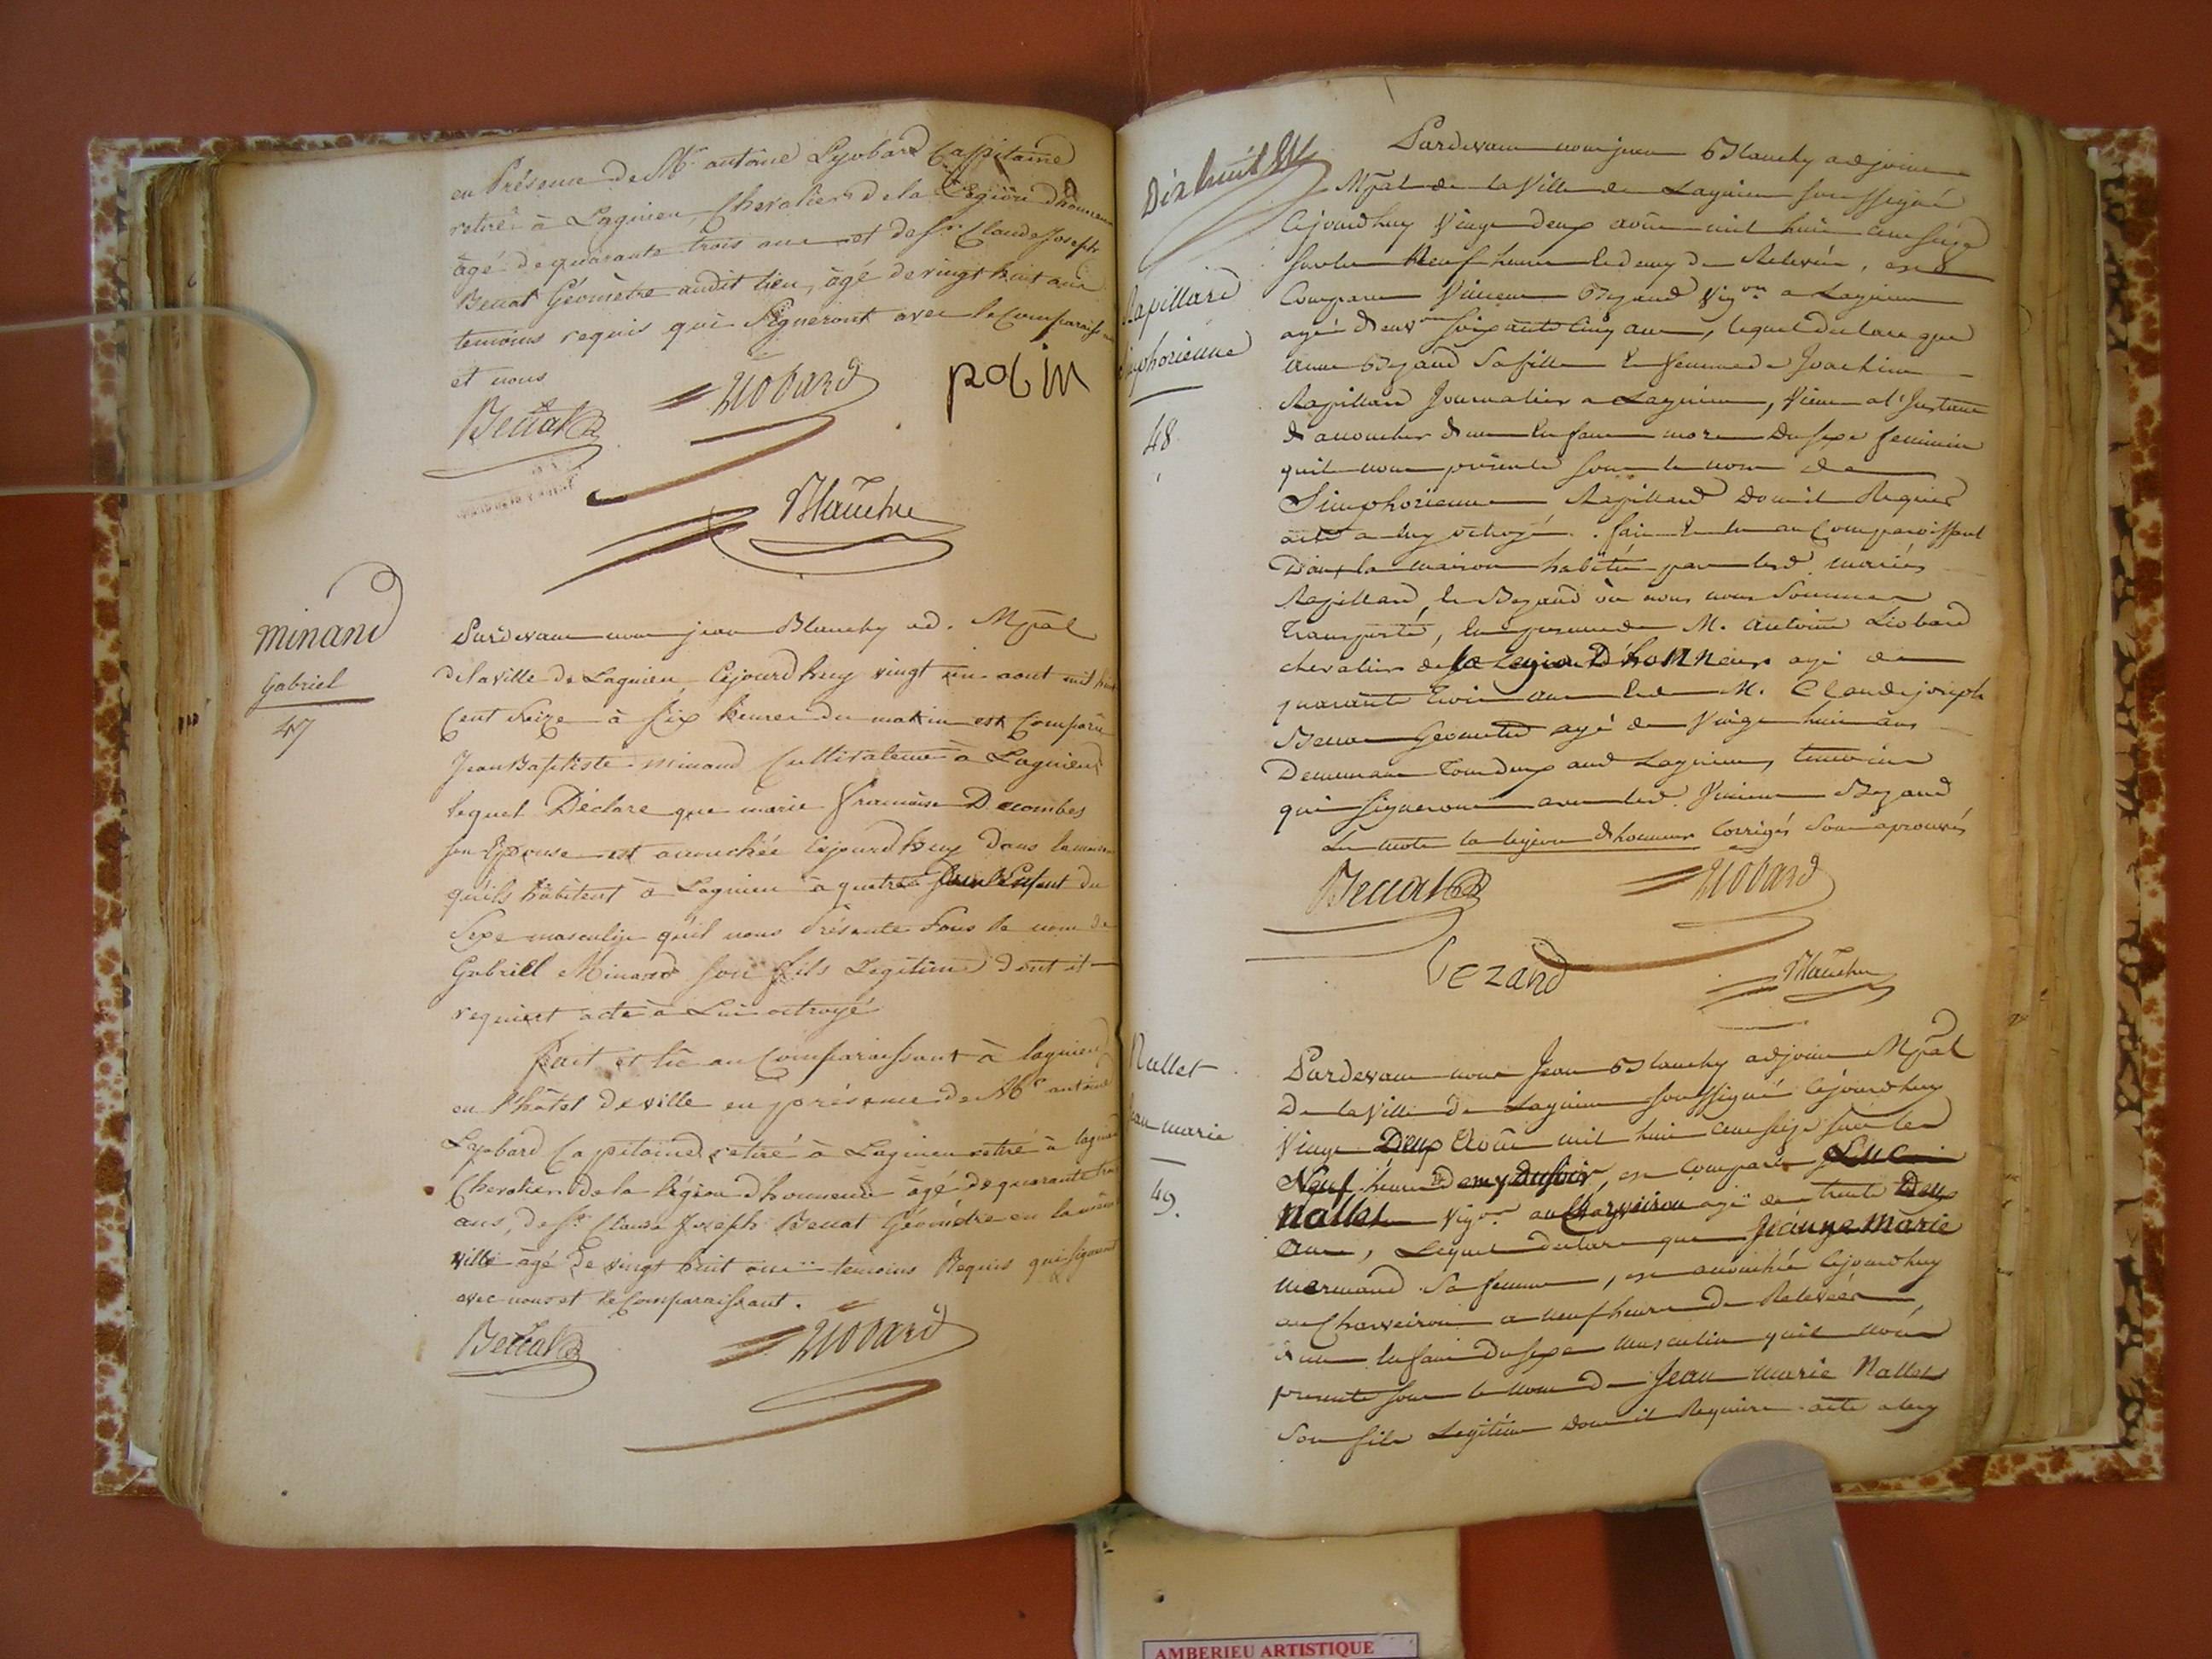 en Présence de Mr. antoine Lyobard Capitaine
retiré à Lagnieu, Chevalier de la Légion dhonneur
âgé de quarante trois ans et de Sr. Claude Joseph
Benat Géomètre audit lieu, âgé de vingt huit ans
temoins requis qui Signeront avec le Comparaissant
et nous
Benat Liobard polin
Blanchy
minand
Gabriel
47
Pardevant nous jean Blanchy ad. Mpal
de la ville de Lagnieu Cejourdhuy vingt un aout mil huit
Cent Seize à six heures du matin est Comparu
Jean Baptiste minand Cultivateur à Lagnieu
lequel Déclare que marie francoise Decombes
son Epouse est accouchée Cejourdhuy dans la maison
qu'ils habitent à Lagnieu à quatre Enfant du
Sexe masculin qu'il nous Présente Sous le nom de
Gabriel Minand son fils Legitime dont il
requiert acte à Lui octroyé
fait et lu au Comparaissant à lagnieu
en l'hôtel de ville en présence de Mr antoine
Lyobard Capitaine retiré à Lagnieu retiré à lagnieu
Chevalier de la légion dhonneur âgé de quarante trois
ans, de Sr. Claude Joseph Benat Géomètre en la même
ville âgé de vingt huit ans temoins Requis qui signeront
avec nous et le Comparaissant.
Benat Liobard
Dix huit
Rapillard
Simphorienne
48
Pardevant nous jean Blanchy adjoint
Mpal de la Ville de Lagnieu soussigné
Cejourdhuy Vingt deux août mil huit cent seize
sur les Neuf heures et demy de Relevée, est
Comparu Vincent Bezand Vigon a Lagnieu
agé denvon soixante cinq ans, lequel declare que
anne Bezand Sa fille et femme de Joachim
Rapillard Journalier a Lagnieu, Vient a l'Instant
daccoucher dun Enfant mort Du sexe feminin
quil nous présente sous le nom de
Simphorienne Rapillard Dont il Requiert
acte a luy octroyé. fait et lu au Comparoissant
Dans la maison habitée par lesd. mariés
Rapillard, et Bezand où nous nous Sommes
transporté, En presence de M. Antoine Liobard
chevalier de la Legion DhoNNeur agé de
quarante trois ans et de M. Claude joseph
Benat Geometre agé de Vingt huit ans
Demeurant tous deux aud Lagnieu, temoins
qui signeront avec led. Vincent Bezand
Les mots la legion dhonneur Corrigés Sont aprouvés
Benat Liobard
bezand Blanchy
Nallet
Jean marie
49.
Pardevant nous Jean Blanchy adjoint Mpal
De la Ville de Lagnieu soussigné Cejourdhuy
Vingt Deux Août mil huit cent seize sur les
Neuf heures Demy Du soir, est Comparu Luc
Nallet Vigon au Charveiron agé de trente Deux
Ans, Lequel declare que Jeanne Marie
mermand Sa femme, est accouchée Cejourdhuy
au Charveiron a neuf heures de Relevée,
dun Enfant Du sexe masculin quil nous
presente sous le nom de Jean marie Nallet
Son fils Legitime Dont il Requiert acte a luy
AMBERIEU ARTISTIQUE